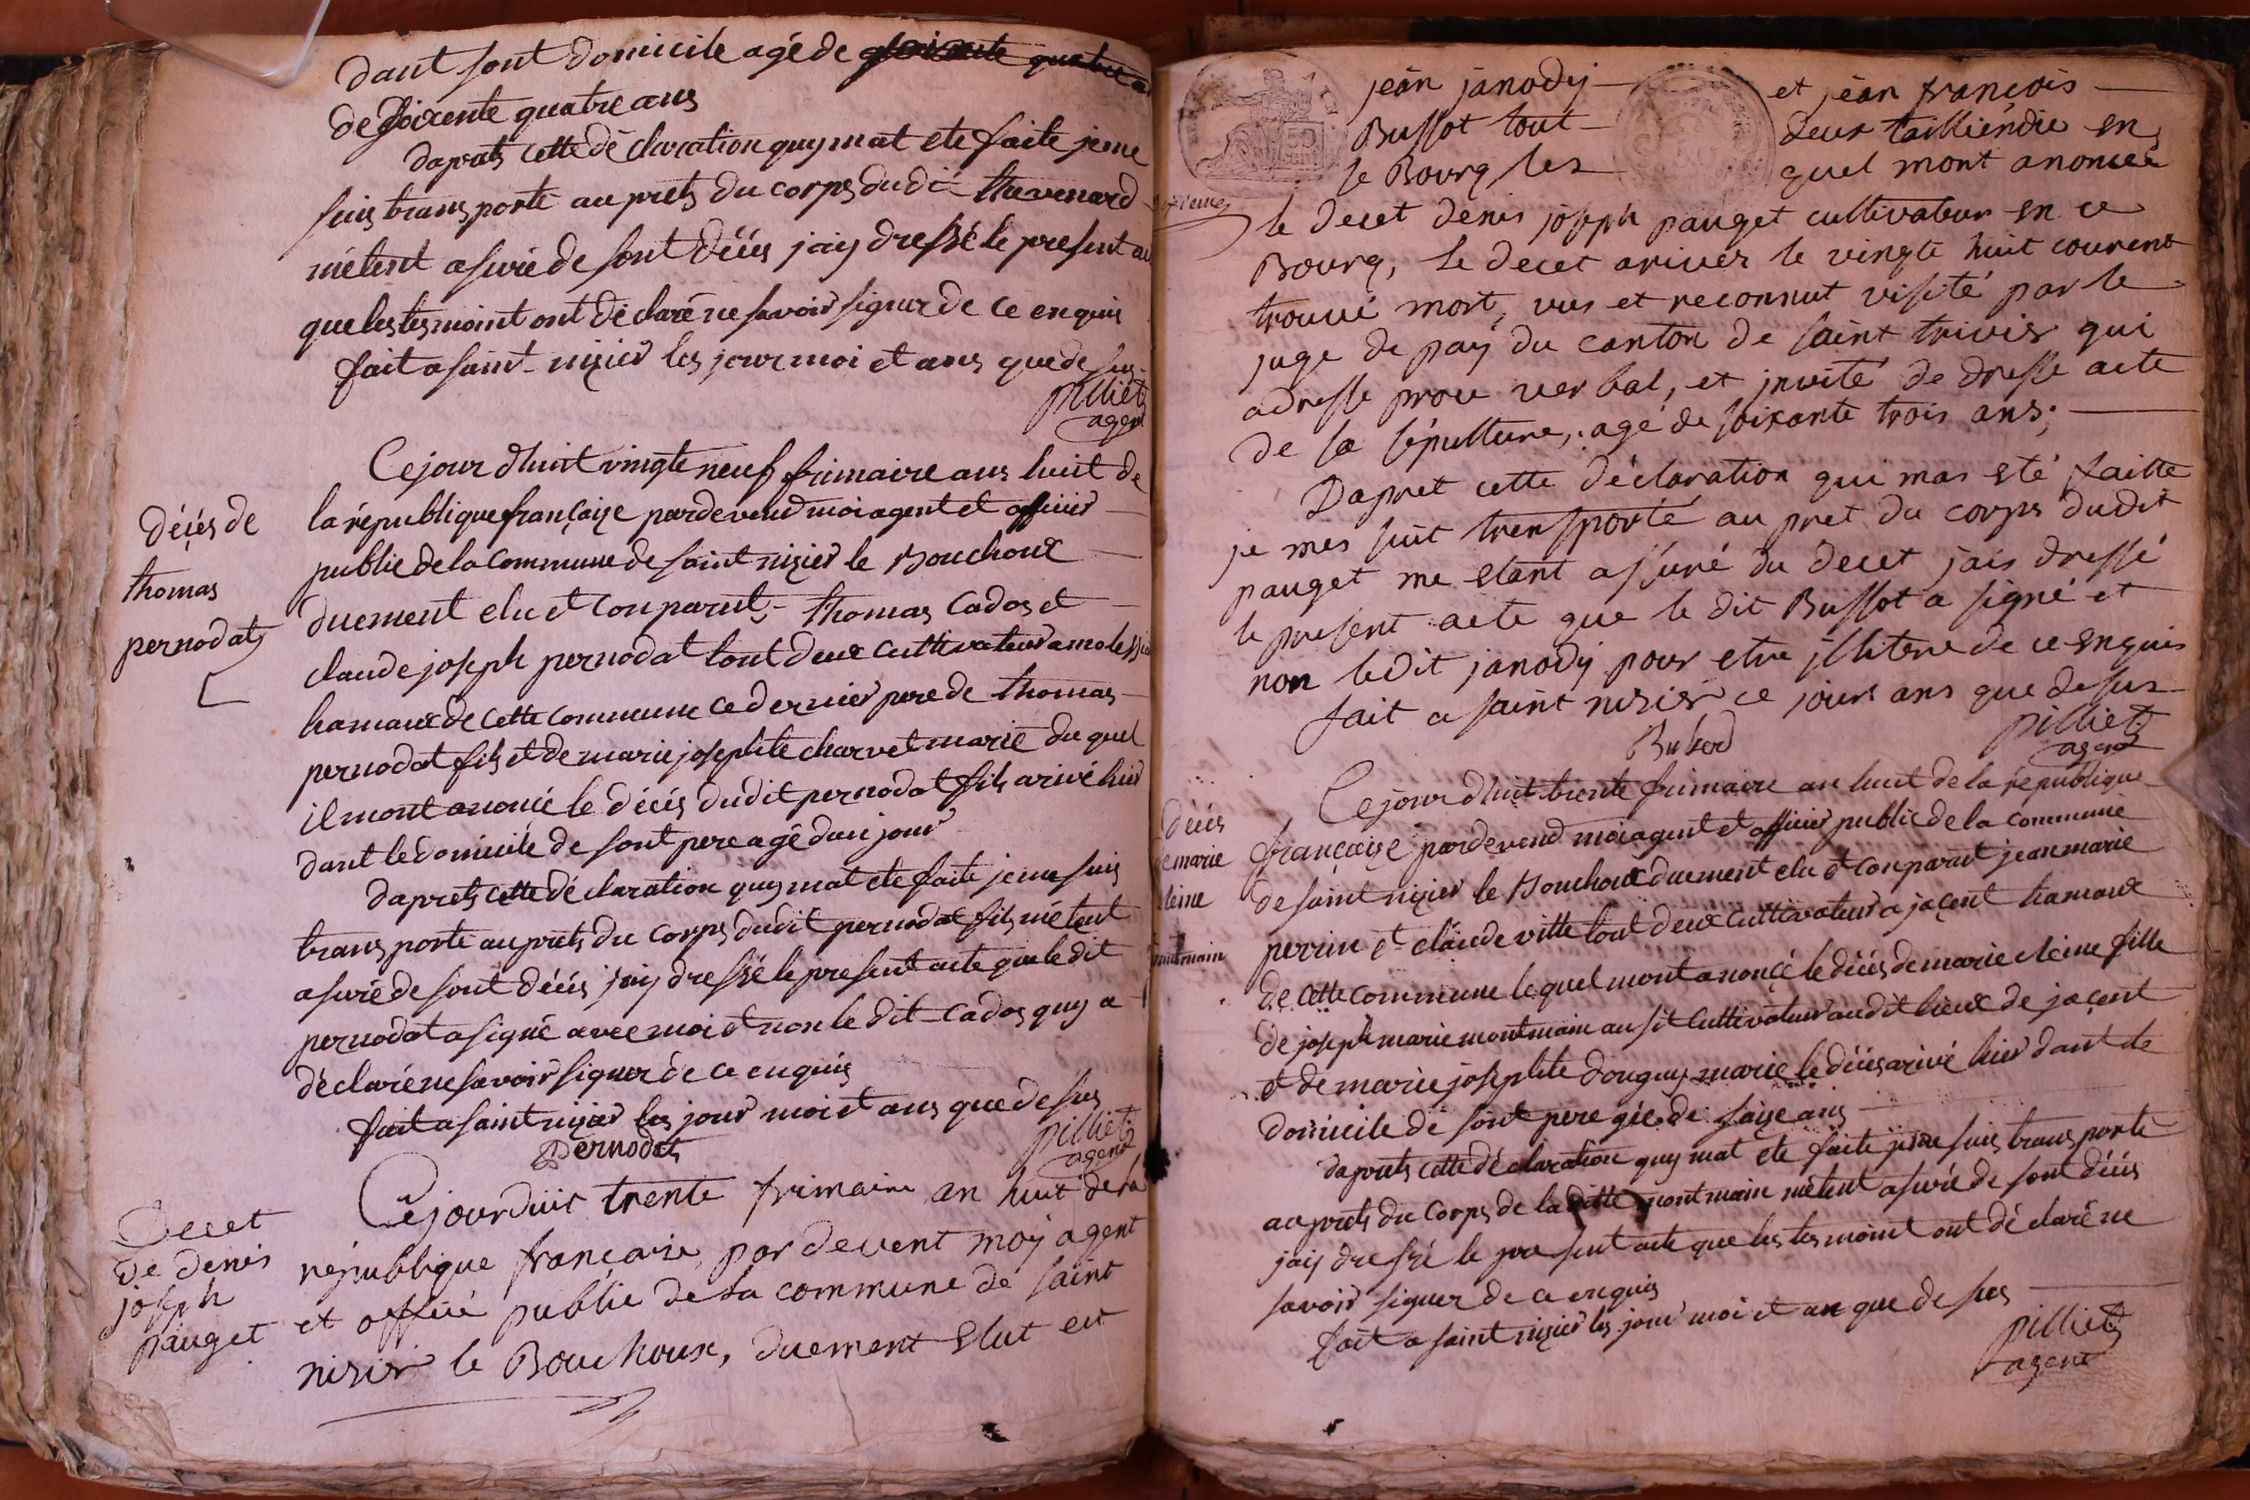 dant sont domicile agé de soixante quatre
de Soixente quatre ans
daprets cette dé claration quy mat ete faite je me
suis trans porté au prets du corps dudi thevenard
mé tent asuré de sont décés jaiy dressé le present
que les tesmoint ont déclaré ne savoir signer de ce enquis
fait a saint nizier les jour moi et ans que de sus
pilliet
agent
décés de
thomas
pernodat
Ce jour dhuit vingte neuf frimaire ans huit de
la république françaize par devend moi agent et officier
public de la commune de saint nizier le Bouchoux
duement elu et Conparut thomas Cados et
claude joseph pernodat tout deux cultivateur a
hamaux de cette commune ce dernier pere de thomas
pernodat fils et de marie josephte charvet marié du quel
il mont anoncé le décés dudit pernodat fils arivé hier
dant le domicile de sont pere agé dun jour
daprets cette dé claration quy mat ete faite je me suis
trans porté au prets du corps dudit pernodat fils mé tent
asuré de sont décés jaiy dressé le present acte que le dit
pernodat a signé avec moi et non le dit Cados quy a
déclaré ne savoir signer de ce enquis
fait a saint nizier les jour moi et ans que de sus
pernodat
pilliet
agent
Decet
de denis
joseph
pauget
Cejourduit trente frimaire an huit de la
république francaise par devent moy agent
et officié public de la commune de saint
nisier le Bouchoux, duement Elut est
jean janody et jean françois
Bussot tout deux taillièndie en
le Bourg les quel mont anoncée
le decet denis joseph pauget cultivateur en ce
Bourg, le decet ariver le vingte huit courent
trouvé mort, vus et reconnut visité par le
juge de pay du canton de saint trivier qui
adresse proce verbal, et jnvité de dresse acte
de sa sépulture, agé de soixante trois ans;
Dapret cette déclaration qui mas eté faitte
je mes suit trensporté au pret du corps dudit
pauget me etant assuré du decet jais dressé
le present acte que le dit Bussot a signé et
non ledit janody pour etre jllitere de ce enquis
fait a saint nisier ce jours ans que desus
pilliet
agent
décés
de marie
cleine
montmain
Ce jour dhuit trente frimaire an huit de la république
françaize par devend moi agent et officier public de la commune
de saint nizier le Bouchoux duement elu et Conparut jean marie
perrin et claude vitte tout deux cultivateur a jaçent hamaux
de cette commune lequel mont anoncé le décés de marie cleine fille
de joseph marie montmain ausit cultivateur audit lieux de jaçent
et de marie josephte donguy marié le décés arivé hier dant le
domicile de sont pere géé de saize ans
daprets cette dé claration quy mat ete faite je me suis trans porté
au prets du corps de la ditte montmain mé tent asuré de sont décés
jaiy dressé le present acte que les tesmoint ont dé claré ne
savoir signer de ce enquis
fait a saint nizier les jour moi et an que de sus
pilliet
agent